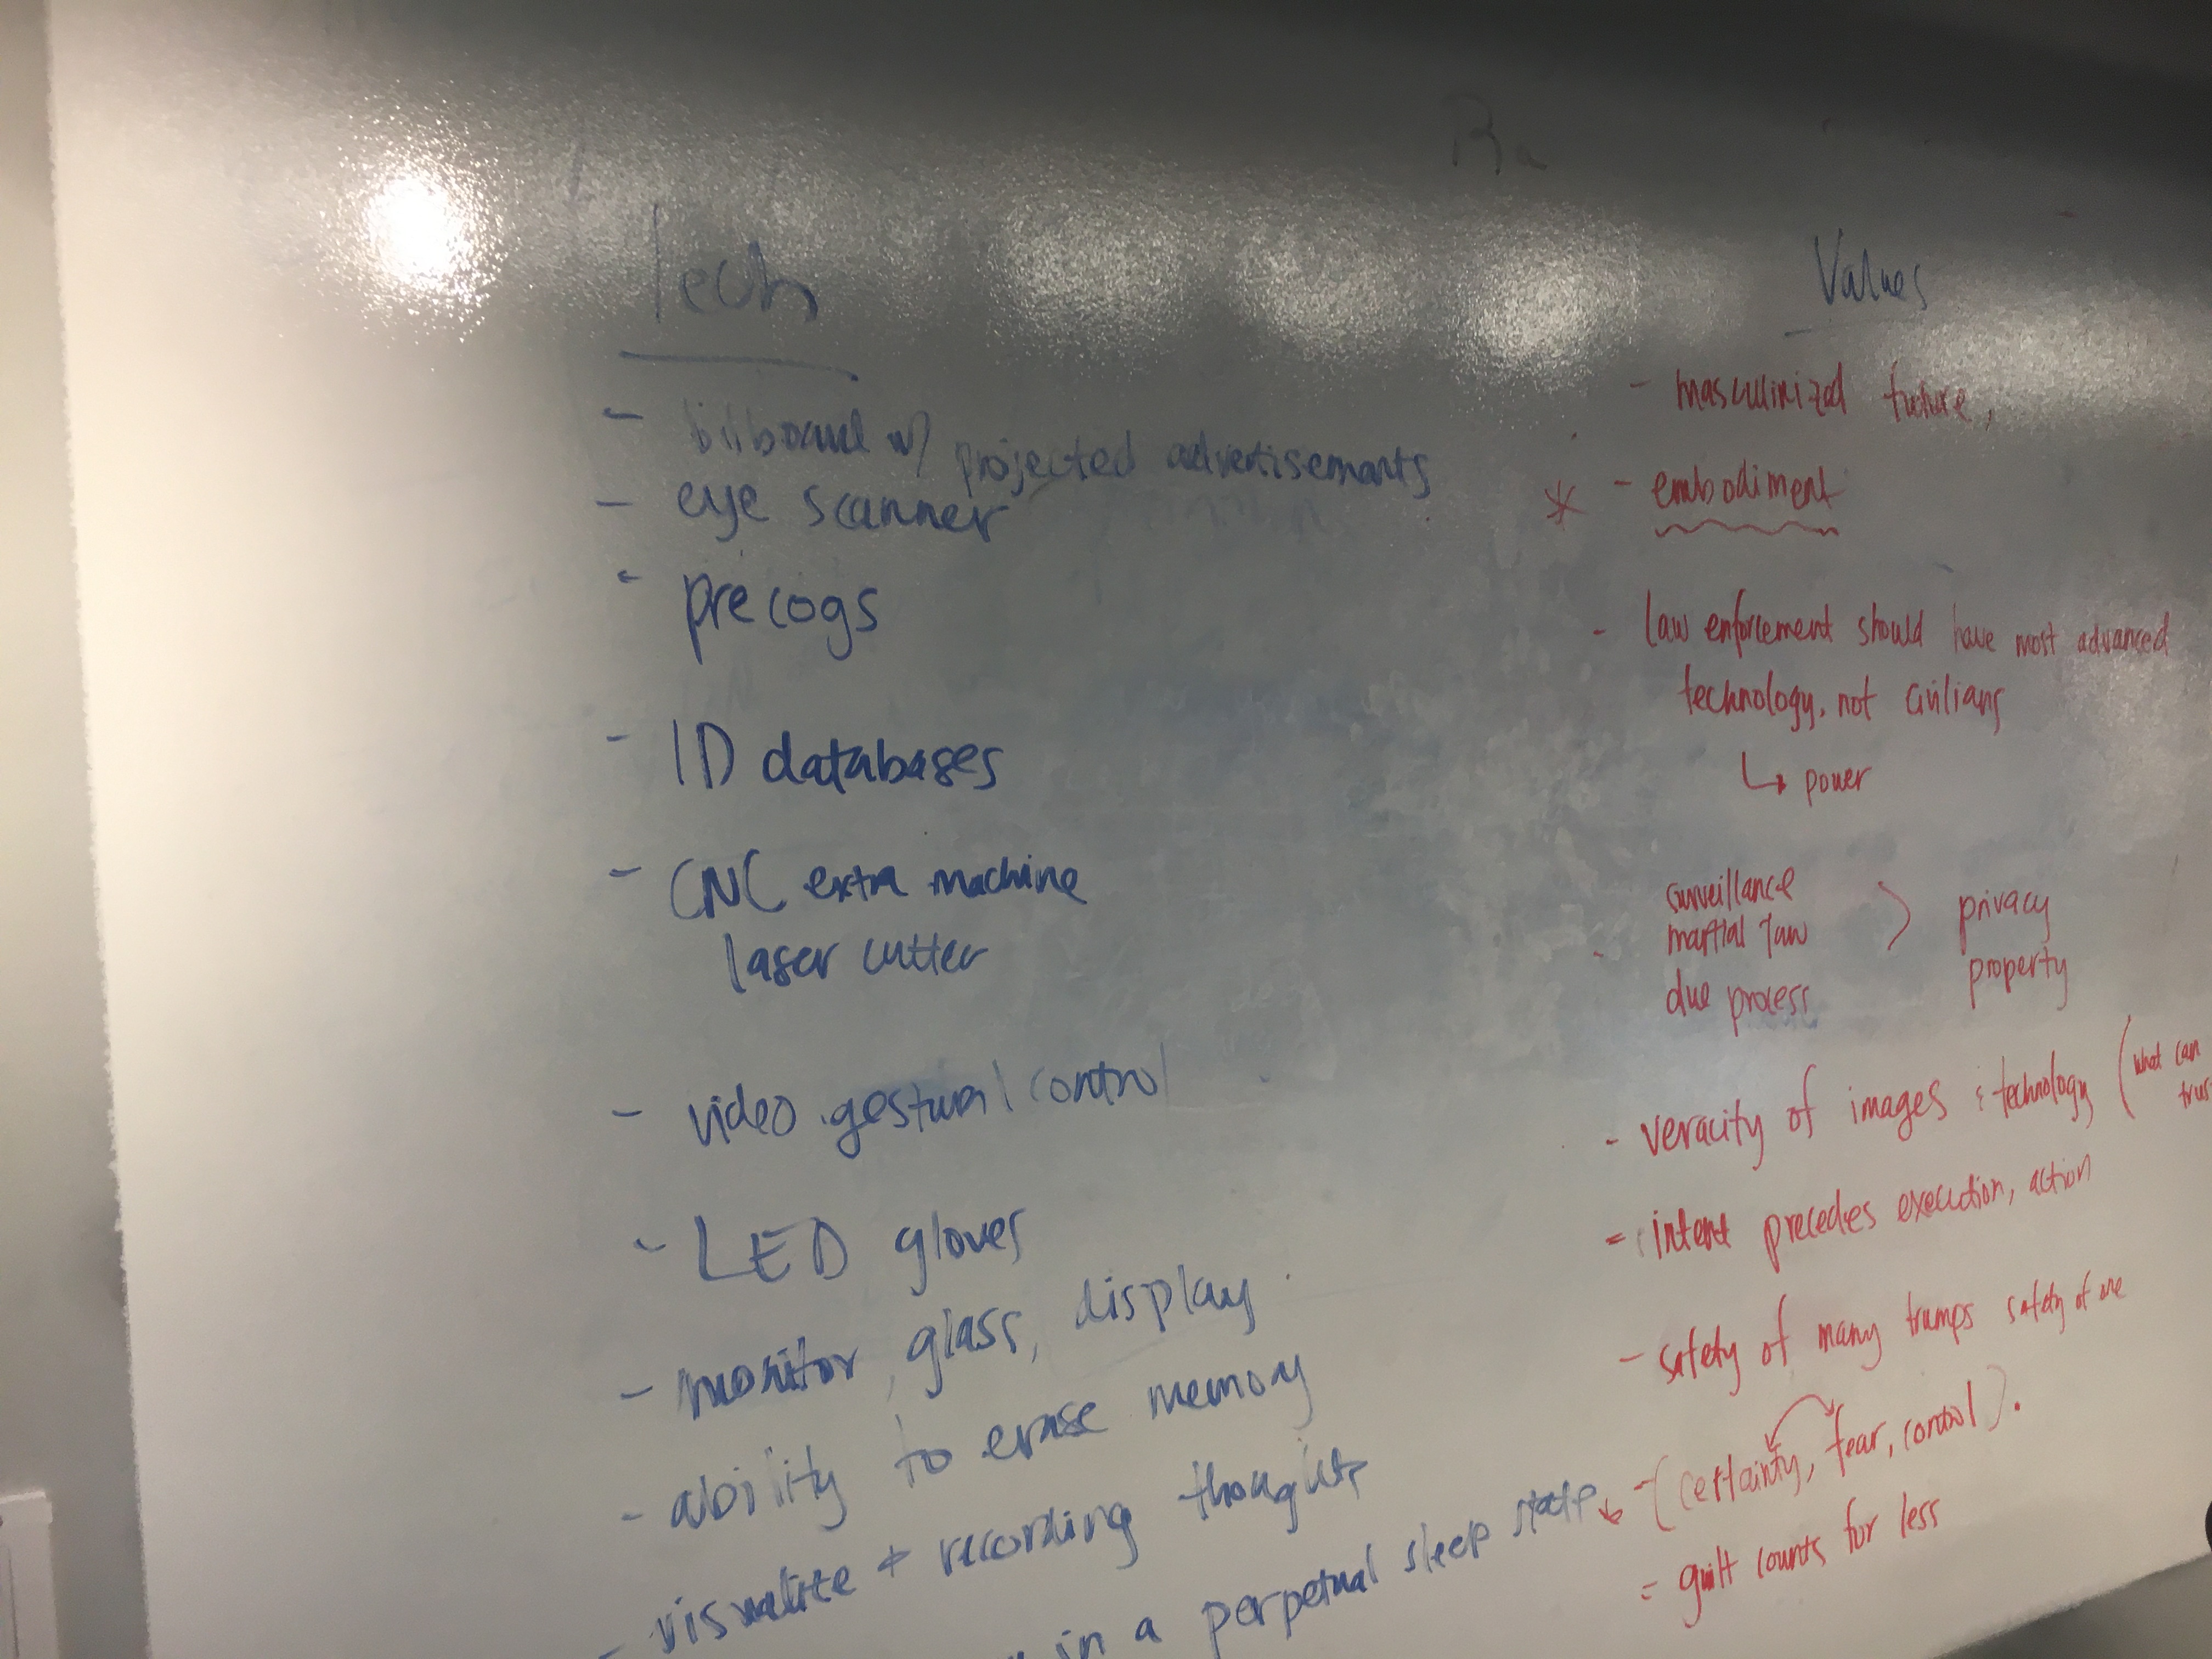 Tech
- bilboard w/ projected advertisements
- eye scanner
- precogs
- ID databases
- CNC extra machine
laser cutter
- video gestural control
- LED gloves
- monitor, glass, display
- ability to erase memory
- visualize + recording thoughts
in a perpetual sleep state
Values
- masculinized future,
* - embodiment
- law enforcement should have most advanced
technology, not civilians
↳ power
surveillance
- martial law > privacy
due process property
- veracity of images & technology (what can
trus
- intent precedes execution, action
- safety of many trumps safety of one
- (certainty, fear, control).
- guilt counts for less